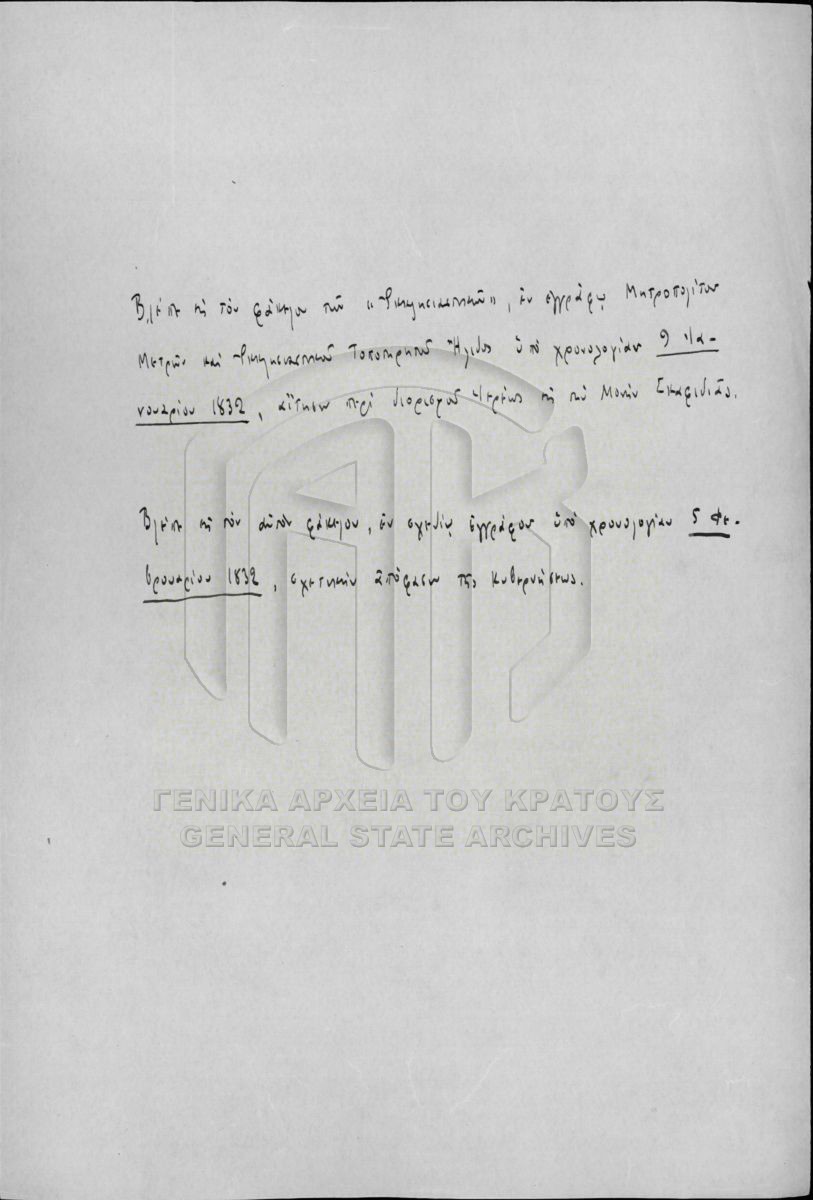 Βλέπε εἰς τὸν φάκελον τῶν «Ἐκκλησιαστικῶν», ἐν ἐγγράφῳ Μητροπολίτου
Μετρῶν καὶ Ἐκκλησιαστικοῦ Τοποτηρητοῦ Ἤλιδος ὑπὸ χρονολογίαν 9 Ἰα-
νουαρίου 1832, αἴτησιν περὶ διορισμοῦ Ἱερέως εἰς τὴν Μονὴν Σκαφιδιᾶς.
Βλέπε εἰς τὸν αὐτὸν φάκελον, ἐν σχεδίῳ ἐγγράφου ὑπὸ χρονολογίαν 5 Φε-
βρουαρίου 1832, σχετικὴν ἀπόφασιν τῆς Κυβερνήσεως.
ΓΕΝΙΚΑ ΑΡΧΕΙΑ ΤΟΥ ΚΡΑΤΟΥΣ
GENERAL STATE ARCHIVES